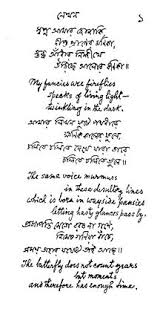 লেখন
১
স্বপ্ন আমার জোনাকি
দীপ্ত প্রাণের মণিকা,
স্তব্ধ আঁধার নিশীথে
উড়িছে আলোর কণিকা॥
My fancies are fireflies
specks of living light—
twinkling in the dark.
আমার লিখন ফুটে পথধারে
ক্ষণিক কালের ফুলে,
চলিতে চলিতে দেখে যারা তারে
চলিতে চলিতে ভুলে॥
The same voice murmurs
in these desultory lines
which is born in wayside pansies
letting hasty glances pass by.
প্রজাপতি সে তো বরষ না গণে,
নিমেষ গণিয়া বাঁচে,
সময় তাহার যথেষ্ট তাই আছে॥
The butterfly does not count years
but moments
and therefore has enough time.